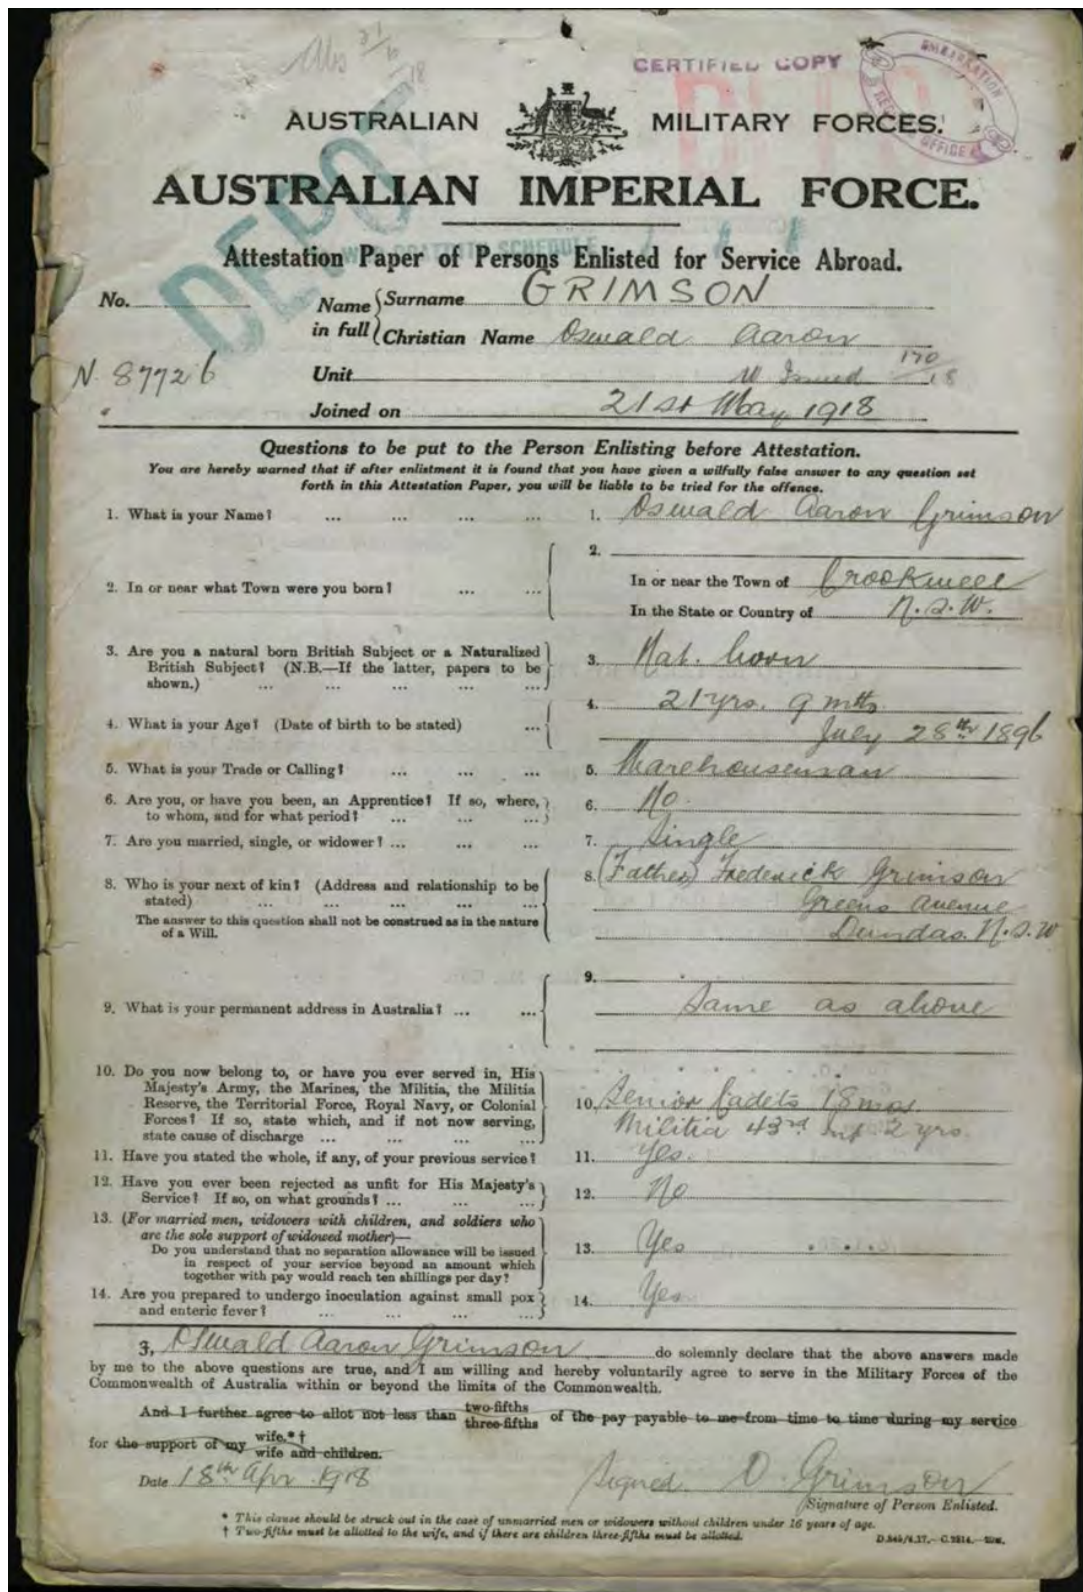 CERTIFIED COPY
EMBARKATION
OFFICE
AUSTRALIAN MILITARY FORCES.
AUSTRALIAN IMPERIAL FORCE.
DEPOT
Attestation Paper of Persons Enlisted for Service Abroad.
No. Name in full Surname GRIMSON
Christian Name Oswald Aaron
N 87726
Unit W Issued 170/18
Joined on 21st May 1918
Questions to be put to the Person Enlisting before Attestation.
You are hereby warned that if after enlistment it is found that you have given a wilfully false answer to any question set
forth in this Attestation Paper, you will be liable to be tried for the offence.
1. What is your Name? ... ... ... ... 1. Oswald Aaron Grimson
2. In or near what Town were you born? ... ... 2.
In or near the Town of Crookwell
In the State or Country of N.S.W.
3. Are you a natural born British Subject or a Naturalized
British Subject? (N.B.—If the latter, papers to be
shown.) ... ... ... ... ... 3. Nat. born
4. What is your Age? (Date of birth to be stated) ... 4. 21 yrs. 9 mths
July 28th 1896
5. What is your Trade or Calling? ... ... ... 5. Warehouseman
6. Are you, or have you been, an Apprentice? If so, where,
to whom, and for what period? ... ... ... 6. No.
7. Are you married, single, or widower? ... ... ... 7. Single
8. Who is your next of kin? (Address and relationship to be
stated) ... ... ... ... ...
The answer to this question shall not be construed as in the nature
of a Will.
8. (Father) Frederick Grimson
Greens Avenue
Dundas. N.S.W
9. What is your permanent address in Australia? ... ... 9.
Same as above
10. Do you now belong to, or have you ever served in, His
Majesty's Army, the Marines, the Militia, the Militia
Reserve, the Territorial Force, Royal Navy, or Colonial
Forces? If so, state which, and if not now serving,
state cause of discharge ... ... ... ...
10. Senior Cadets 18 mos.
Militia 43rd Inf 2 yrs.
11. Have you stated the whole, if any, of your previous service? 11. Yes.
12. Have you ever been rejected as unfit for His Majesty's
Service? If so, on what grounds? ... ... ... 12. No
13. (For married men, widowers with children, and soldiers who
are the sole support of widowed mother)—
Do you understand that no separation allowance will be issued
in respect of your service beyond an amount which
together with pay would reach ten shillings per day?
13. Yes
14. Are you prepared to undergo inoculation against small pox
and enteric fever? ... ... ... ... 14. Yes
I, Oswald Aaron Grimson do solemnly declare that the above answers made
by me to the above questions are true, and I am willing and hereby voluntarily agree to serve in the Military Forces of the
Commonwealth of Australia within or beyond the limits of the Commonwealth.
And I further agree to allot not less than two-fifths three-fifths of the pay payable to me from time to time during my service
for the support of my wife.*† wife and children.
Date 18th Apr. 1918 Signed. O. Grimson
Signature of Person Enlisted.
* This clause should be struck out in the case of unmarried men or widowers without children under 16 years of age.
† Two-fifths must be allotted to the wife, and if there are children three-fifths must be allotted.